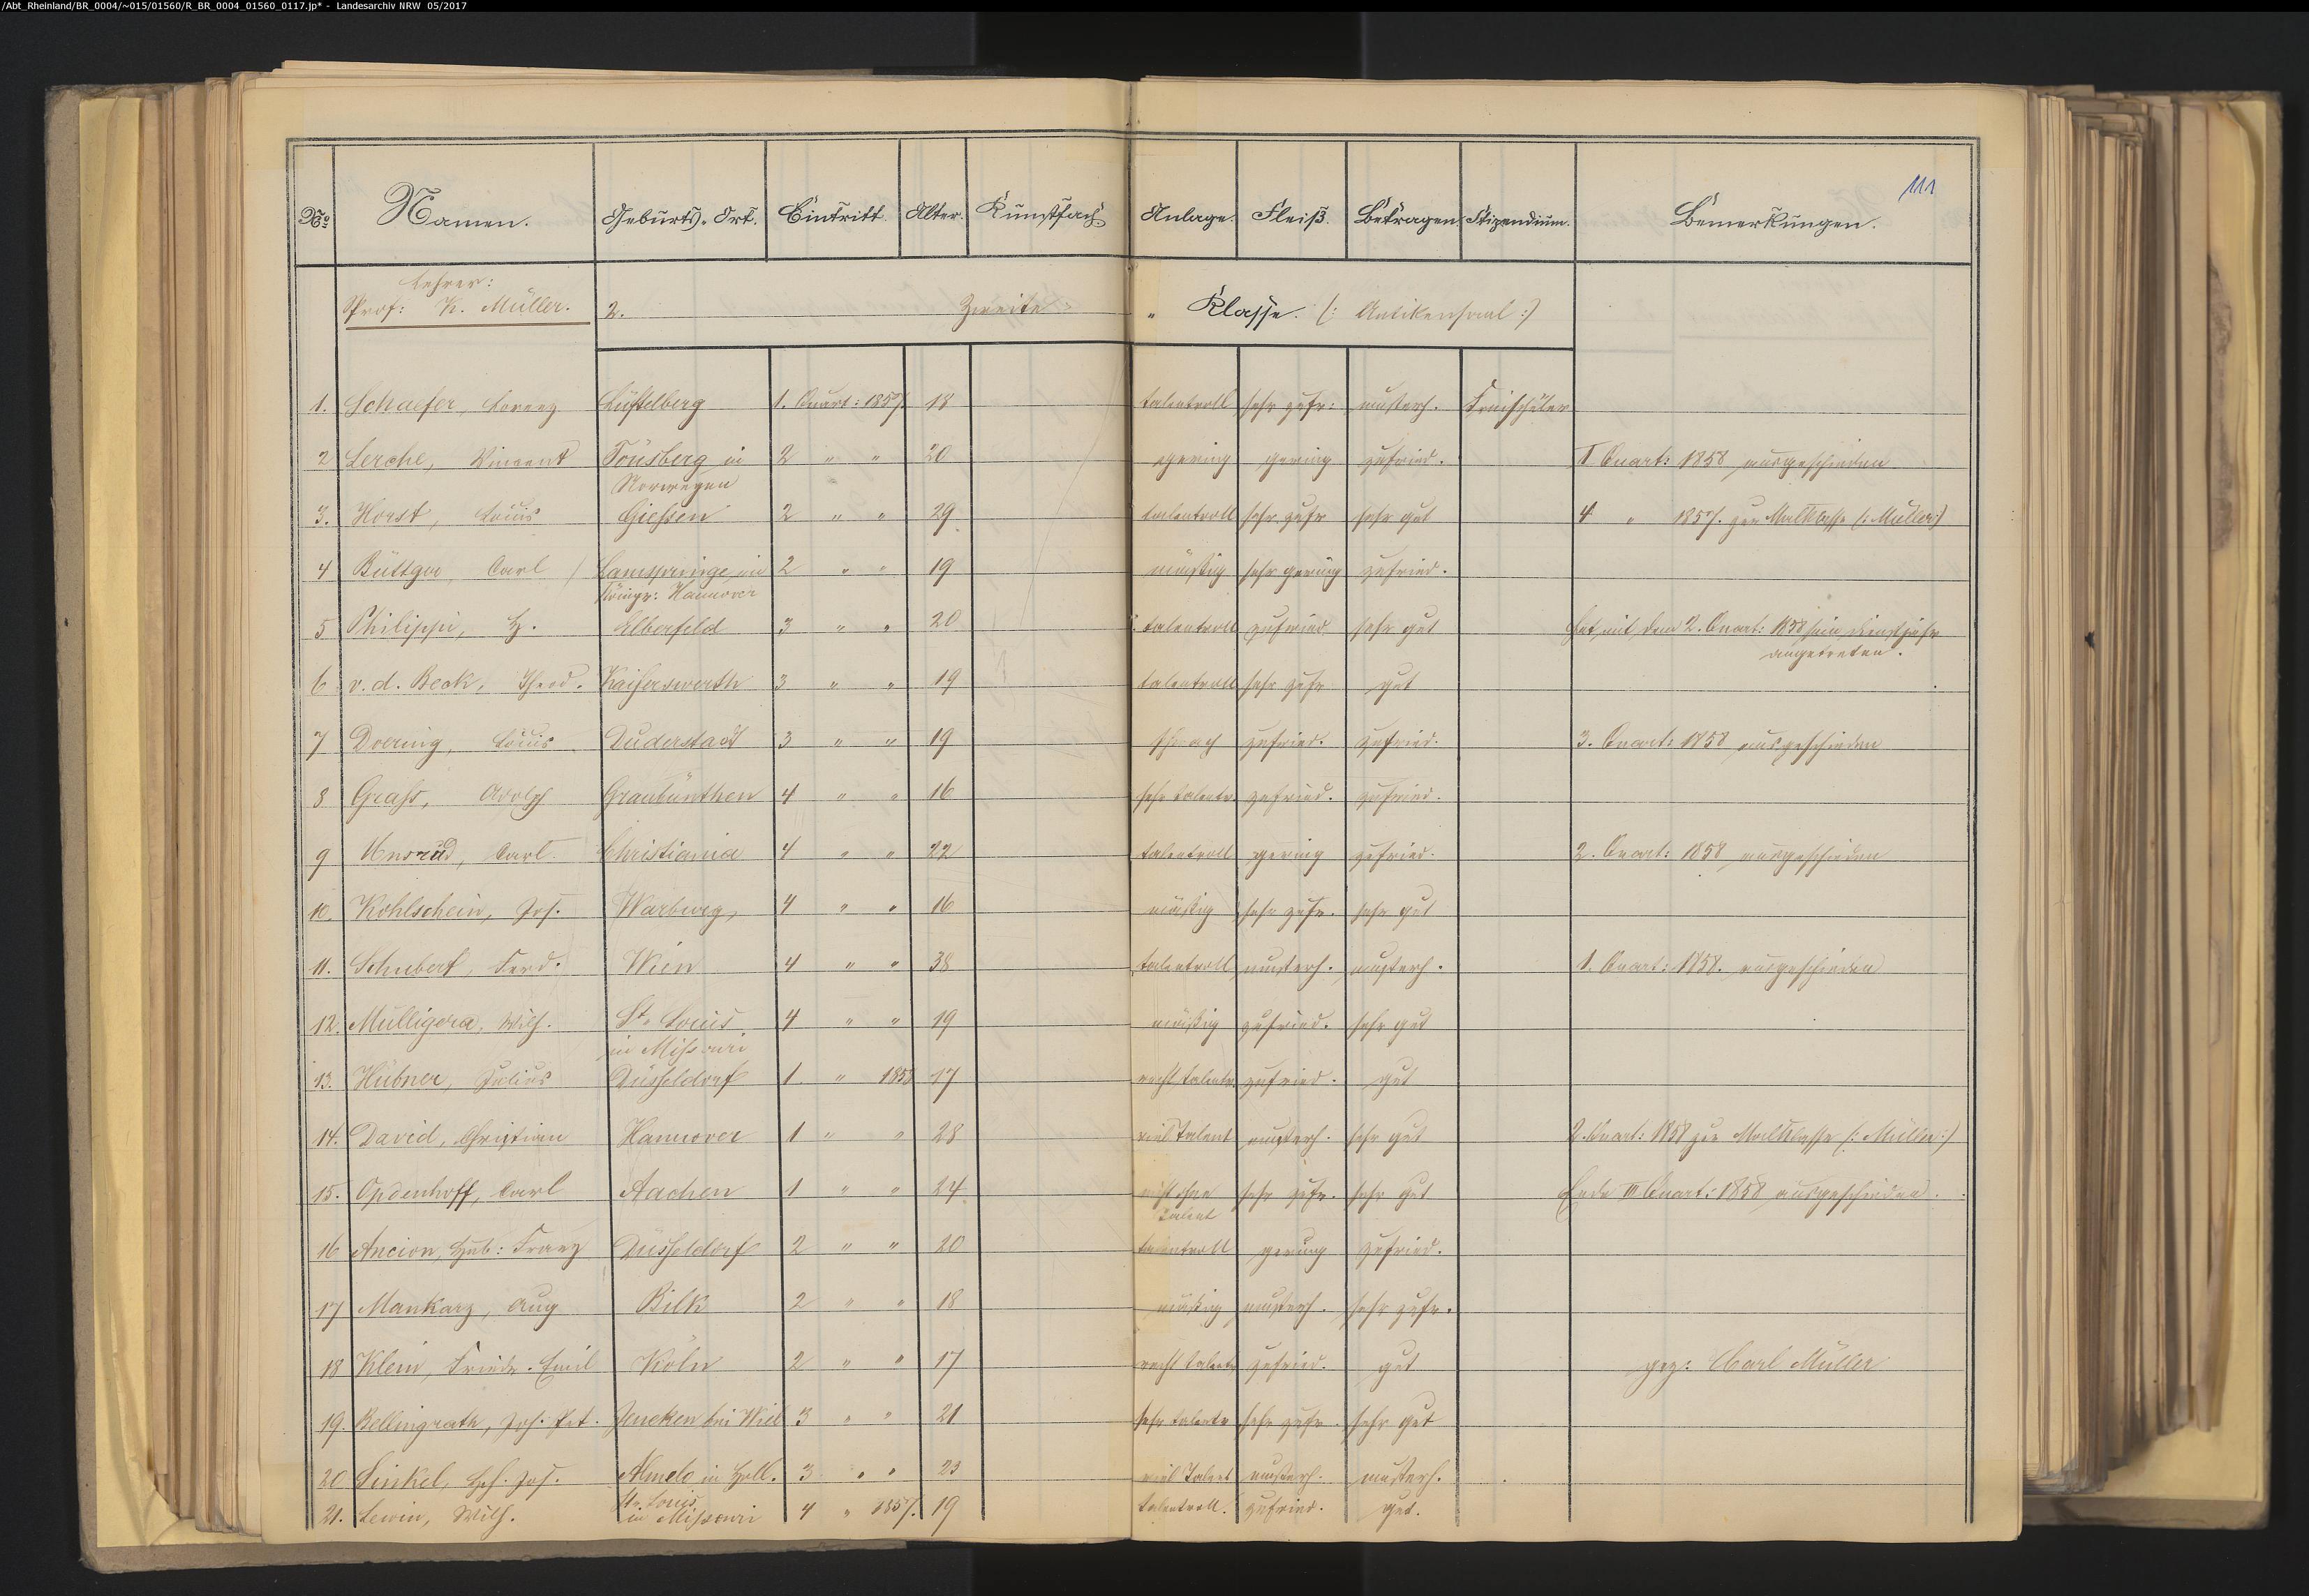 /Abt_Rheinland/BR_0004/~015/01560/R_BR_0004_01560_0117.jp* - Landesarchiv NRW 05/2017
111
No. Namen. Geburts-Ort. Eintritt. Alter. Kunstfach Anlage. Fleiß. Betragen. Stipendium. Bemerkungen.
Lehrer:
Prof: K. Müller. 2. Zweite " Klasse. (: Antikensaal :)
1. Schaefer, Lorenz Lüftelberg 1. Quart: 1857. 18 talentvoll sehr zufr: musterh. Freischüler
2 Lerche, Vincent Tönsberg in 2 " " 20 gering gering zufried. I Quart: 1858 ausgeschieden
Norwegen
3. Horst, Louis Giessen 2 " " 29 talentvoll sehr zufr sehr gut 4 " 1857. zur Malklasse (: Müller :)
4 Büttger, Carl Lamspringe, im 2 " " 19 mäßig sehr gering zufried.
Königr: Hannover
5 Philippi, H. Elberfeld 3 " " 20 talentvoll zufried. sehr gut hat mit dem 2. Quart: 1858 sein Dienstjahr
angetreten.
6 v. d. Beck, Theod. Kaiserswerth 3 " " 19 talentvoll sehr zufr gut
7 Doering, Louis Duderstadt 3 " " 19 schwach zufried. zufried. 3. Quart: 1858 ausgeschieden
8 Grass, Adolph Graubünthen 4 " " 16 sehr talentv. zufried. zufried.
9 Unsrud, Carl Christiania 4 " " 22 talentvoll gering zufried. 2. Quart: 1858 ausgeschieden
10. Kohlschein, Jos. Warburg, 4 " " 16 mäßig sehr zufr. sehr gut
11. Schubert, Ferd. Wien 4 " " 38 talentvoll musterh. musterh. 1. Quart: 1858. ausgeschieden
12. Mulligera, Wilh. St. Louis 4 " " 19 mäßig zufried. sehr gut
in Missouri
13. Hübner, Julius Düsseldorf 1. " 1858 17 recht talentv. zufried. gut
14. David, Christian Hannover 1 " " 28 viel Talent musterh. sehr gut 2. Quart: 1858 zur Malklasse (: Müller :)
15. Opdenhoff, Carl Aachen 1 " " 24 nicht ohne sehr zufr. sehr gut Ende III Quart: 1858 ausgeschieden.
Talent
16 Ancion, Hub: Franz Düsseldorf 2 " " 20 talentvoll gering zufried.
17 Mankarz, Aug Bilk 2 " " 18 mäßig musterh. sehr zufr.
18 Klein, Friedr. Emil Köln 2 " " 17 recht talentv zufried. gut gez: Carl Müller
19. Bellingrath, Joh. Pet. Jencken bei Wiel 3 " " 21 sehr talentv sehr zufr sehr gut
20 Sinkel, Hch. Jos. Almelo in Holl. 3 " " 23 viel Talent musterh. musterh.
21. Lewin, Wilh. St. Louis 4 " 1857. 19 talentvoll. zufried. gut.
in Missouri